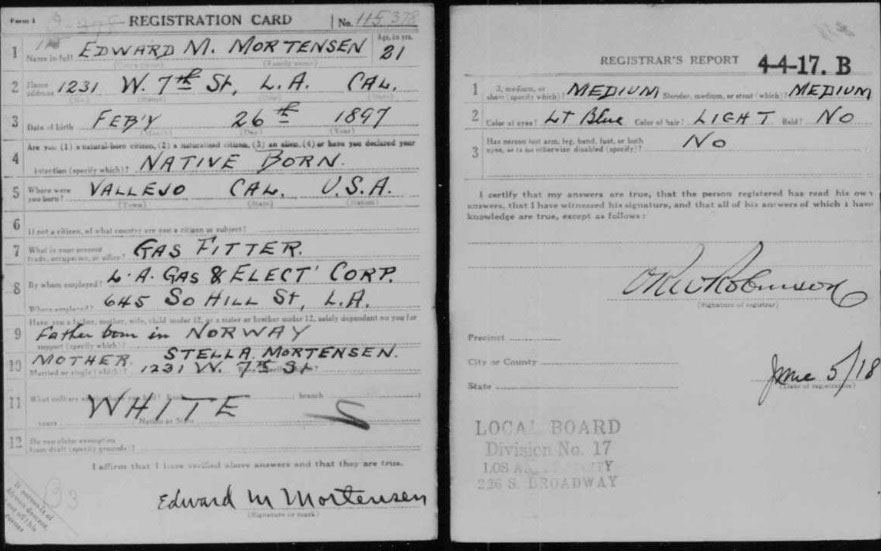 Form 1 REGISTRATION CARD No. 115378
1 Name in full EDWARD M. MORTENSEN Age, in yrs. 21
(Given name) (Family name)
2 Home address 1231 W. 7th St, L.A. CAL.
(No.) (Street) (City) (State)
3 Date of birth FEB'Y 26th 1897
(Month) (Day) (Year)
Are you (1) a natural-born citizen, (2) a naturalized citizen, (3) an alien, (4) or have you declared your
4 intention (specify which)? NATIVE BORN.
5 Where were you born? VALLEJO CAL. U.S.A.
(Town) (State) (Nation)
6 If not a citizen, of what country are you a citizen or subject?
7 What is your present trade, occupation, or office? GAS FITTER.
8 By whom employed? L.A. GAS & ELECT' CORP.
Where employed? 645 SO HILL St, L.A.
Have you a father, mother, wife, child under 12, or a sister or brother under 12, solely dependent on you for
9 support (specify which)? Father born in NORWAY
10 MOTHER. STELLA MORTENSEN.
Married or single (which)? 1231 W. 7th St
11 What military branch
WHITE
years Nation or State
12 Do you claim exemption from draft (specify grounds)?
I affirm that I have verified above answers and that they are true.
Edward M Mortensen
(Signature or mark)
REGISTRAR'S REPORT 4-4-17. B
1 Tall, medium, or short (specify which)? MEDIUM Slender, medium, or stout (which)? MEDIUM
2 Color of eyes? LT Blue Color of hair? LIGHT Bald? NO
3 Has person lost arm, leg, hand, foot, or both eyes, or is he otherwise disabled (specify)? NO
I certify that my answers are true, that the person registered has read his own
answers, that I have witnessed his signature, and that all of his answers of which I have
knowledge are true, except as follows:
Robinson
(Signature of registrar)
Precinct
City or County
State
June 5/18
(Date of registration)
LOCAL BOARD
Division No. 17
LOS A TY
226 S. BROADWAY